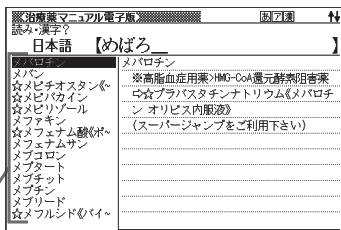 治療薬マニュアル電子版 あア漢
読み・漢字?
日本語 【めばろ__ 】
メバロチン
メバン
☆メピチオスタン《~
☆メピバカイン
☆メピリゾール
メファキン
☆メフェナム酸《ポ~
メフェナムサン
メブコロン
メブタート
メブチット
メプチン
メブリード
☆メフルシド《バイ~
メバロチン
※高脂血症用薬>HMG-CoA還元酵素阻害薬
⇨☆プラバスタチンナトリウム《メバロチ
ン オリピス内服液》
(スーパージャンプをご利用下さい)